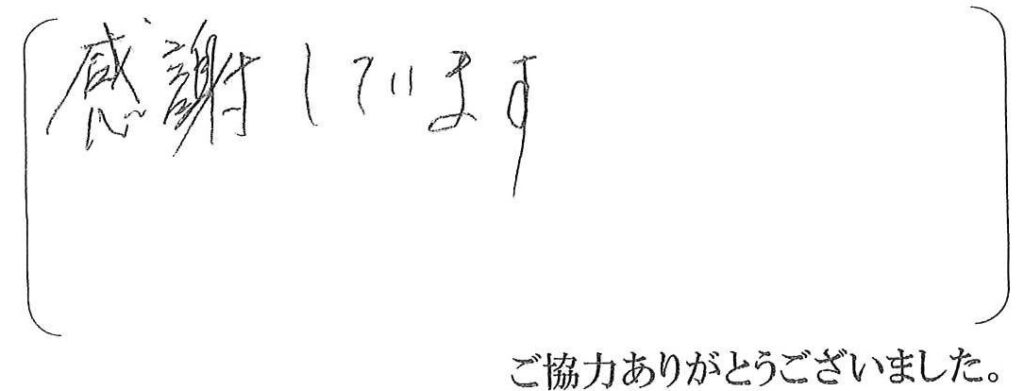 感謝しています
ご協力ありがとうございました。